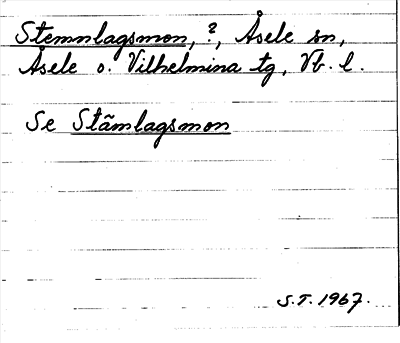 Stemnlagsmon, ?, Åsele sn,
Åsele o. Vilhelmina tg, Vb. l.
Se Stãmlagsmon
S.T. 1967.